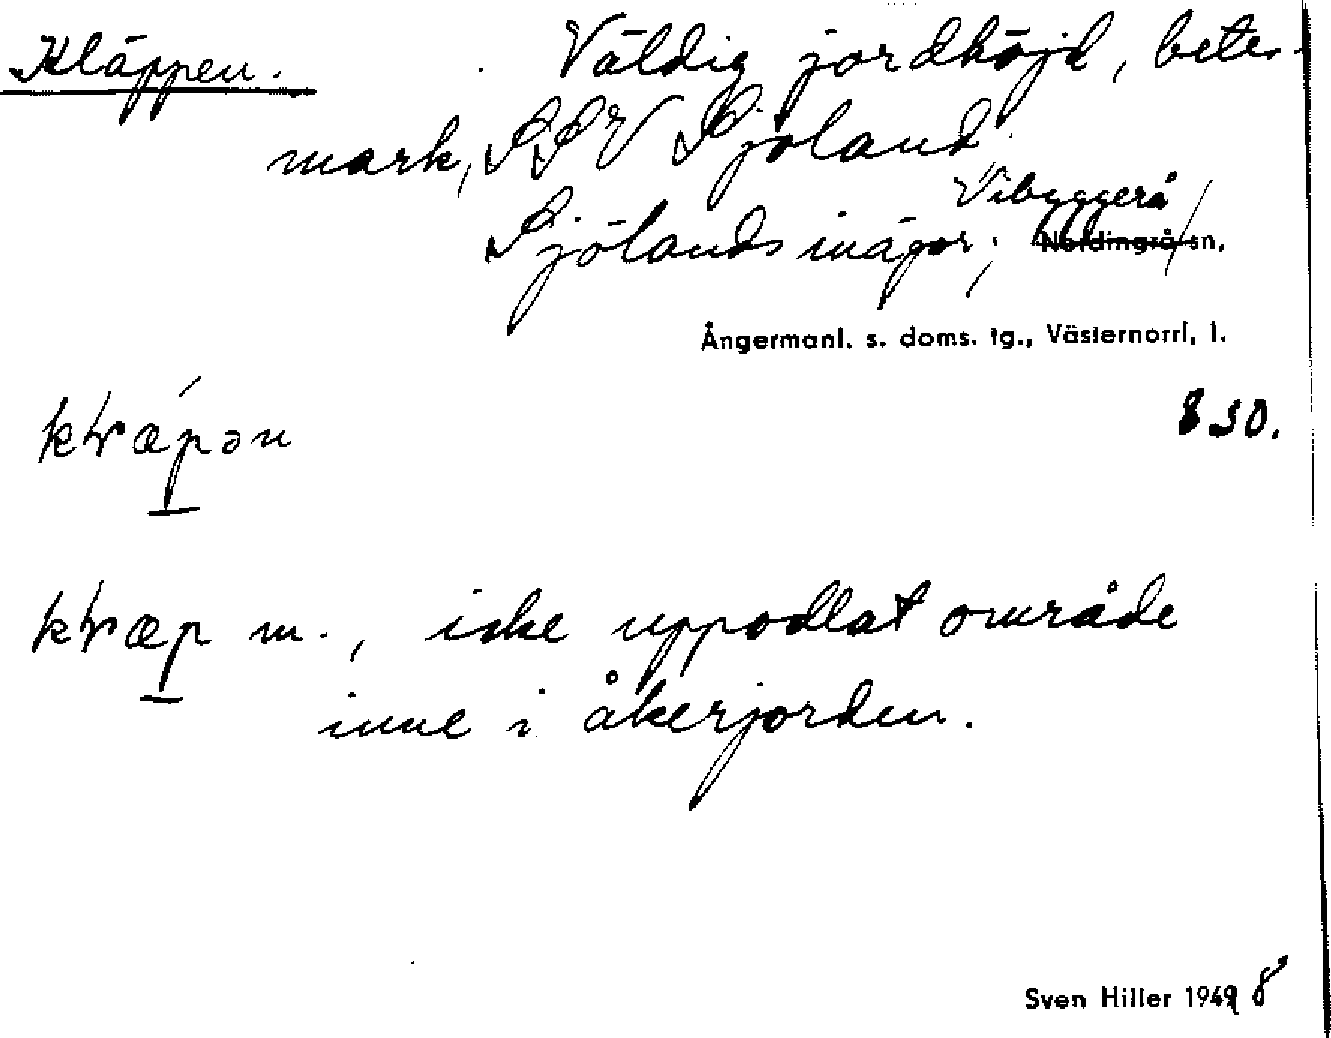 Kläppen. Väldig jordhöjd, betes-
mark, SSV Sjöland.
Vibyggerå
Sjölands inägor; Nordingrå sn,
Ångermanl. s. doms. tg., Västernorrl, l.
850.
m., icke uppodlat område
inne i åkerjorden.
Sven Hiller 1949 8